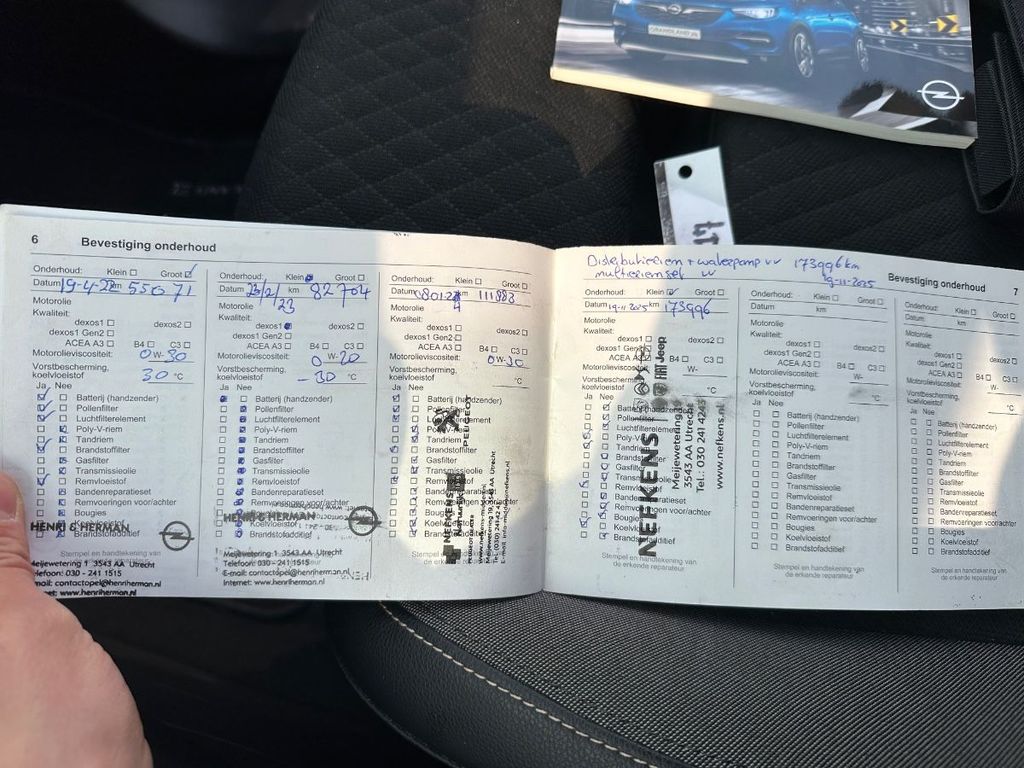 GRANDLAND X
6 Bevestiging onderhoud
Onderhoud: Klein Groot
Datum 19-4-22 km 55071
Motorolie
Kwaliteit:
dexos1 dexos2
dexos1 Gen2
ACEA A3 B4 C3
Motorolieviscositeit: 0 W- 30
Vorstbescherming,
koelvloeistof 30 °C
Ja Nee
Batterij (handzender)
Pollenfilter
Luchtfilterelement
Poly-V-riem
Tandriem
Brandstoffilter
Gasfilter
Transmissieolie
Remvloeistof
Bandenreparatieset
Remvoeringen voor/achter
Bougies
Brandstofadditief
HENRI & HERMAN
Stempel en handtekening van
de erkende reparateur
Meijewetering 1 3543 AA Utrecht
Telefoon: 030 - 241 1515
E-mail: contactopel@henriherman.nl
www.henriherman.nl
Onderhoud: Klein Groot
Datum 23/2/23 km 82704
Motorolie
Kwaliteit:
dexos1 dexos2
dexos1 Gen2
ACEA A3 B4 C3
Motorolieviscositeit: 0 W- 20
Vorstbescherming,
koelvloeistof -30 °C
Ja Nee
Batterij (handzender)
Pollenfilter
Luchtfilterelement
Poly-V-riem
Tandriem
Brandstoffilter
Gasfilter
Transmissieolie
Remvloeistof
Bandenreparatieset
Remvoeringen voor/achter
Bougies
Koelvloeistof
Brandstofadditief
HENRI & HERMAN
Meijewetering 1 3543 AA Utrecht
Telefoon: 030 - 241 1515
E-mail: contactopel@henriherman.nl
Internet: www.henriherman.nl
Onderhoud: Klein Groot
Datum km 111883
Motorolie
Kwaliteit:
dexos1 dexos2
dexos1 Gen2
ACEA A3 B4 C3
Motorolieviscositeit: 0 W- 30
Vorstbescherming,
koelvloeistof °C
Ja Nee
Batterij (handzender)
Luchtfilterelement
Poly-V-riem
Tandriem
Brandstoffilter
Gasfilter
Transmissieolie
Remvloeistof
Brandstofadditief
PEUGEOT
NEFKENS
Stempel
de erkende reparateur
Distributieriem + waterpomp vv 173996 km
multiriem set vv 19-11-2025
Bevestiging onderhoud 7
Onderhoud: Klein Groot
Datum 19-11-2025 km 173996
Motorolie
Kwaliteit:
dexos1 dexos2
dexos1 Gen2
ACEA A3 B4 C3
Motorolieviscositeit: W-
Vorstbescherming,
koelvloeistof °C
Ja Nee
Batterij (handzender)
Pollenfilter
Luchtfilterelement
Tandriem
Brandstoffilter
Gasfilter
Transmissieolie
Remvloeistof
Bandenreparatieset
Remvoeringen voor/achter
Bougies
Koelvloeistof
Brandstofadditief
Jeep
NEFKENS
Meijewetering
3543 AA Utrecht
Tel.: 030 241 4243
www.nefkens.nl
Stempel en handtekening van
de erkende reparateur
Onderhoud: Klein Groot
Datum km
Motorolie
Kwaliteit:
dexos1 dexos2
dexos1 Gen2
ACEA A3 B4 C3
Motorolieviscositeit: W-
Vorstbescherming,
koelvloeistof °C
Ja Nee
Batterij (handzender)
Pollenfilter
Luchtfilterelement
Poly-V-riem
Tandriem
Brandstoffilter
Gasfilter
Transmissieolie
Remvloeistof
Bandenreparatieset
Remvoeringen voor/achter
Bougies
Koelvloeistof
Brandstofadditief
Stempel en handtekening van
de erkende reparateur
Onderhoud: Klein Groot
Datum km
Motorolie
Kwaliteit:
dexos1 dexos2
dexos1 Gen2
ACEA A3 B4 C3
Motorolieviscositeit: W-
Vorstbescherming,
koelvloeistof °C
Ja Nee
Batterij (handzender)
Pollenfilter
Luchtfilterelement
Poly-V-riem
Tandriem
Brandstoffilter
Gasfilter
Transmissieolie
Remvloeistof
Bandenreparatieset
Remvoeringen voor/achter
Bougies
Koelvloeistof
Brandstofadditief
Stempel en handtekening van
de erkende reparateur